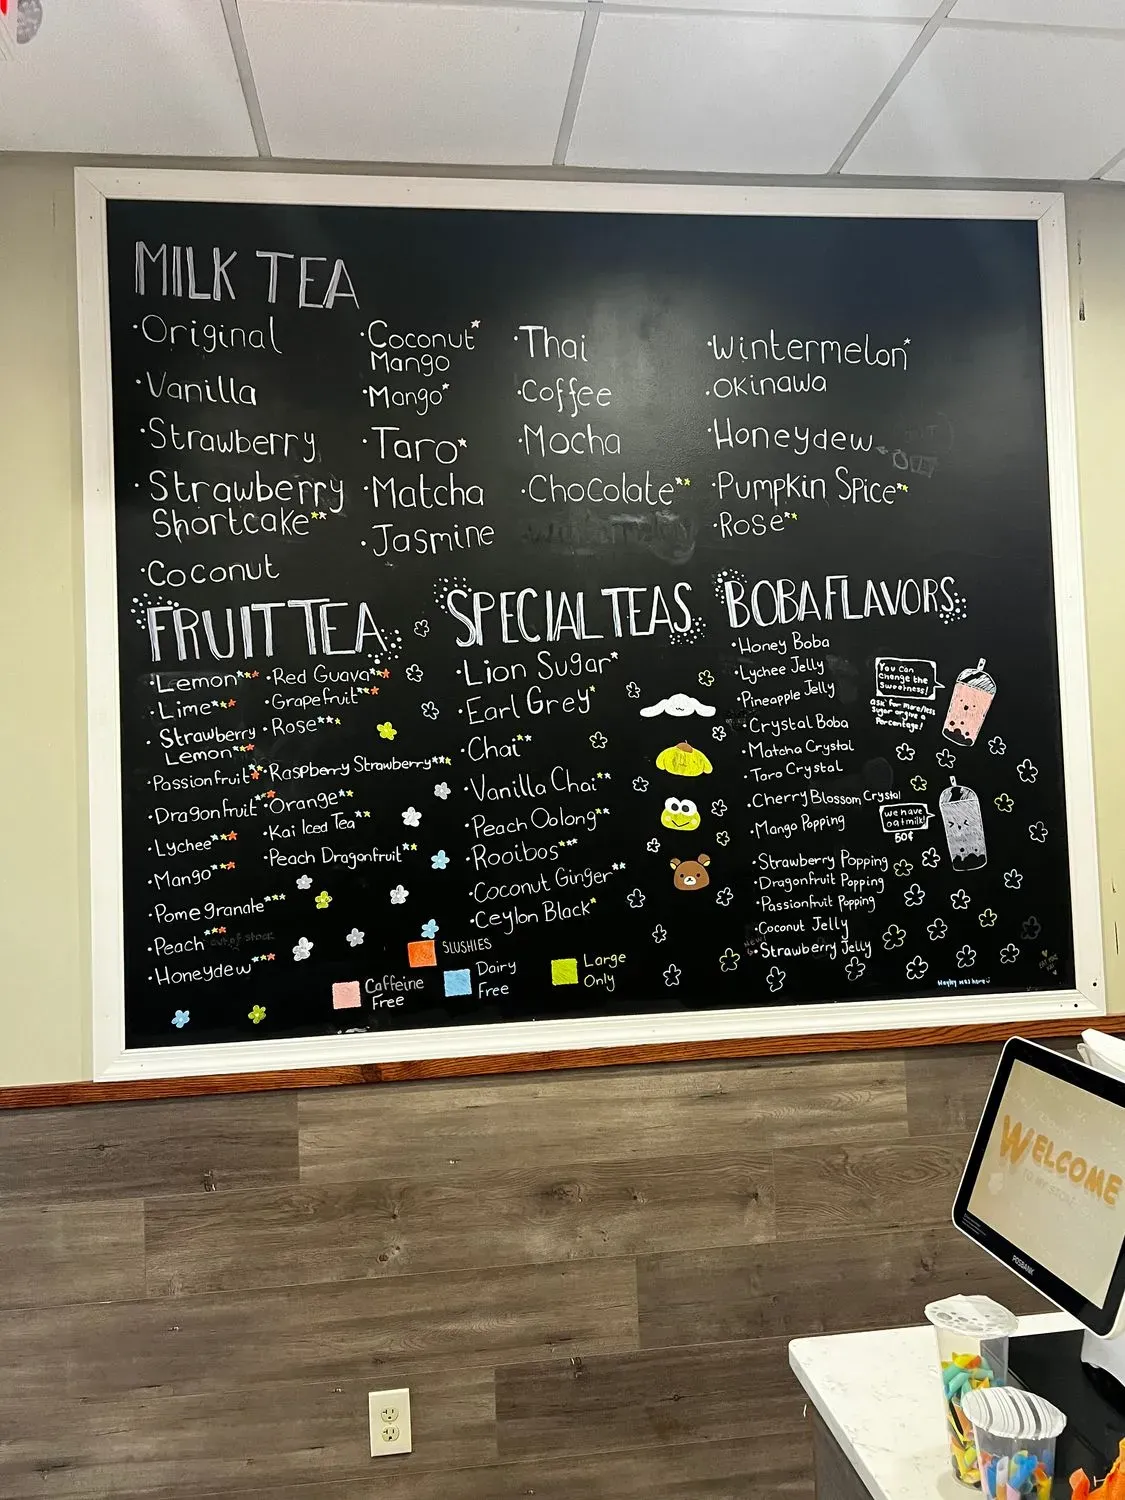 MILK TEA
·Original
·Vanilla
·Strawberry
·Strawberry
Shortcake**
·Coconut
·Coconut*
Mango
·Mango*
·Taro*
·Matcha
·Jasmine
·Thai
·Coffee
·Mocha
·Chocolate**
·Wintermelon*
·Okinawa
·Honeydew
OUT
·Pumpkin Spice**
·Rose**
FRUIT TEA
·Lemon****
·Lime***
·Strawberry
Lemon****
·Passionfruit**
·Dragonfruit**
·Lychee****
·Mango****
·Pomegranate***
·Peach***
out of stock
·Honeydew***
·Red Guava***
·Grapefruit***
·Rose***
·Raspberry Strawberry***
·Orange**
·Kai Iced Tea**
·Peach Dragonfruit**
SPECIAL TEAS
·Lion Sugar*
·Earl Grey*
·Chai**
·Vanilla Chai**
·Peach Oolong**
·Rooibos***
·Coconut Ginger**
·Ceylon Black*
SLUSHIES
Caffeine
Free
Dairy
Free
Large
Only
BOBA FLAVORS
·Honey Boba
·Lychee Jelly
·Pineapple Jelly
·Crystal Boba
·Matcha Crystal
·Taro Crystal
·Cherry Blossom Crystal
·Mango Popping
·Strawberry Popping
·Dragonfruit Popping
·Passionfruit Popping
·Coconut Jelly
·Strawberry Jelly
You can
change the
Sweetness!
ask for more/less
Sugar or give a
Percentage!
we have
oatmilk!
50¢
Hayley was here
WELCOME
POSBANK